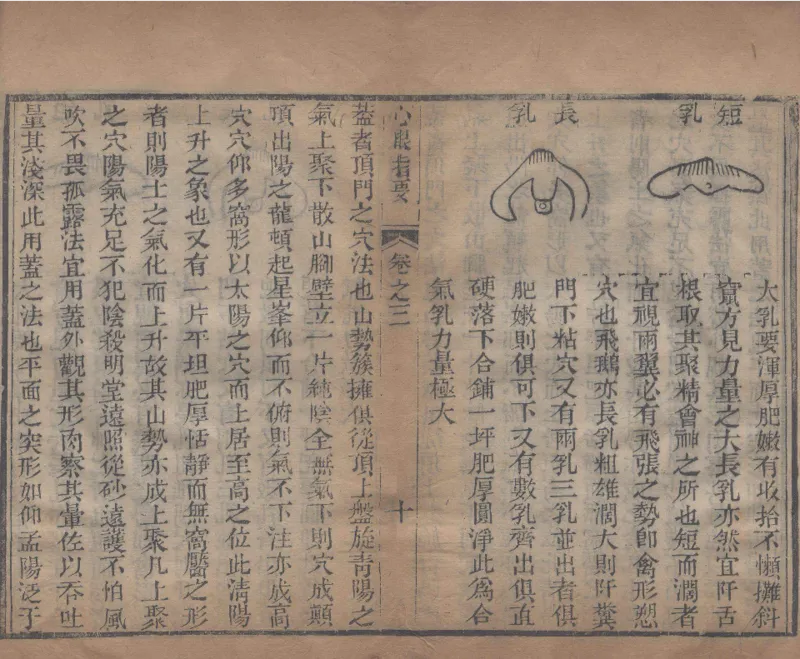 短乳
長乳
大乳要渾厚肥嫩有收拾不懶攤斜
實方見力量之大長乳亦然宜阡舌
根取其聚精會神之所也短而濶者
宜視兩翼必有飛張之勢卽禽形
穴也飛鵝亦長乳粗雄濶大則阡糞
門下粘穴又有兩乳三乳並出者俱
肥嫩則俱可下又有數乳齊出俱直
硬落下合鋪一坪肥厚圓淨此爲合
氣乳力量極大
心眼指要 卷之三 十
葢者頂門之穴法也山勢簇擁俱從頂上盤旋青陽之
氣上聚下散山腳壁立一片純陰全無氣下則穴成顛
頂出陽之龍頓起星峯仰而不俯則氣不下注亦成高
穴穴仰多窩形以太陽之穴而上居至高之位此清陽
上升之象也又有一片平坦肥厚恬靜而無窩靨之形
者則陽土之氣化而上升故其山勢亦成上聚凡上聚
之穴陽氣充足不犯陰殺明堂遠照從砂遠護不怕風
吹不畏孤露法宜用葢外觀其形內察其暈佐以吞吐
量其淺深此用葢之法也平面之突形如仰盂陽泛于